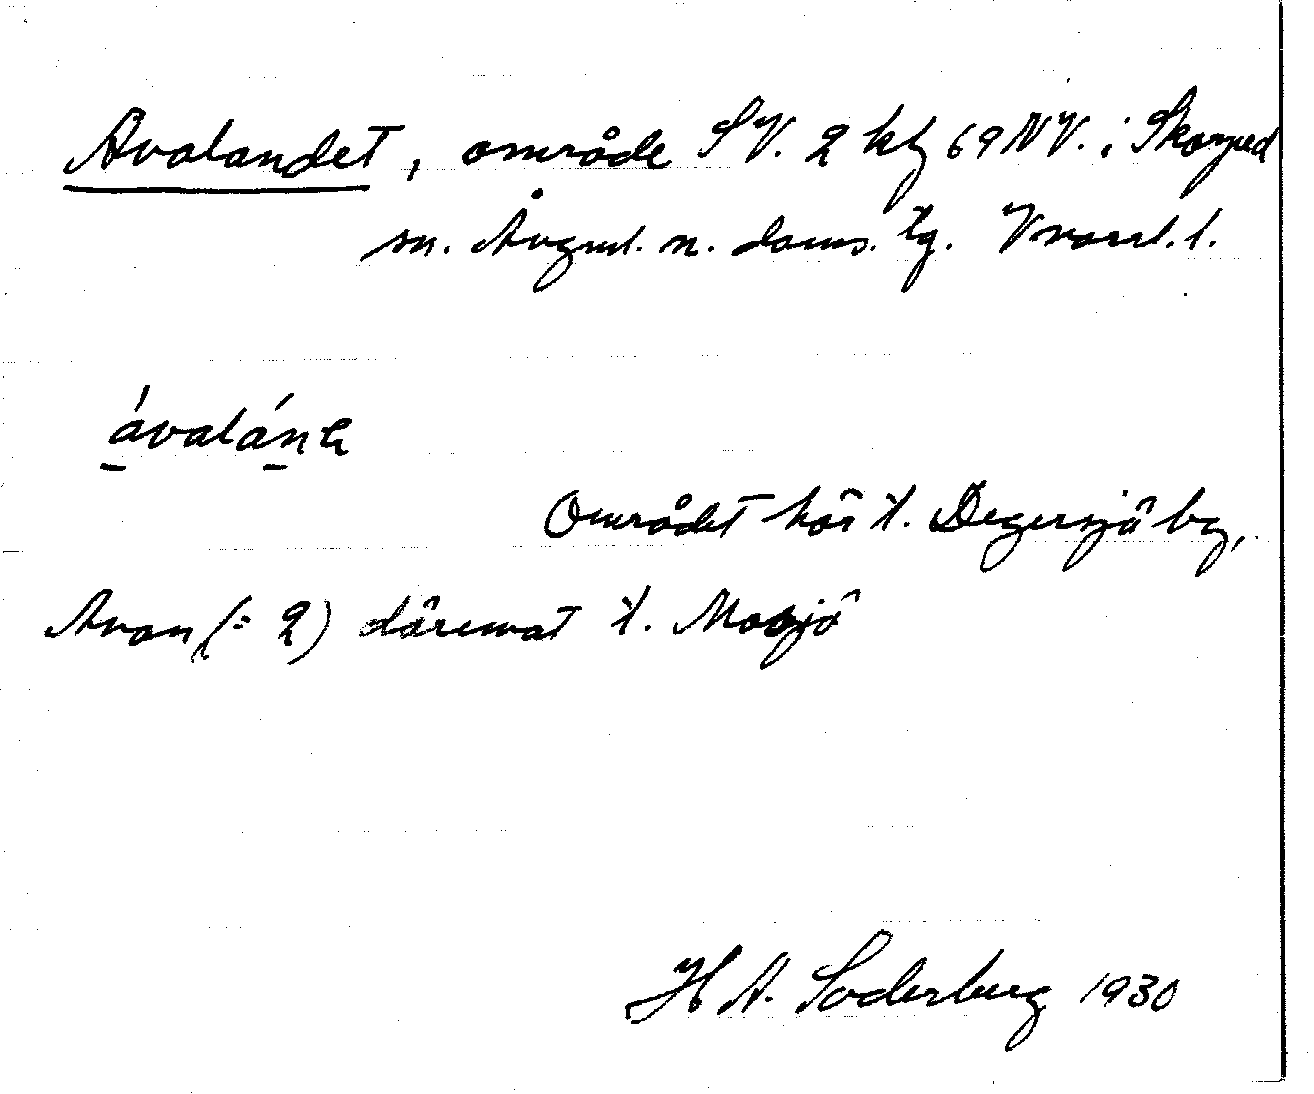 Avalandet, område SV. 2 kbl 69 NV. i Skorped
sn. Ångml. n. doms. tg. Vnorrl. l.
ávalánɛ
Området hör t. Degersjö by,
Avan (: 2) däremot t. Mosjö
H A. Söderberg 1930